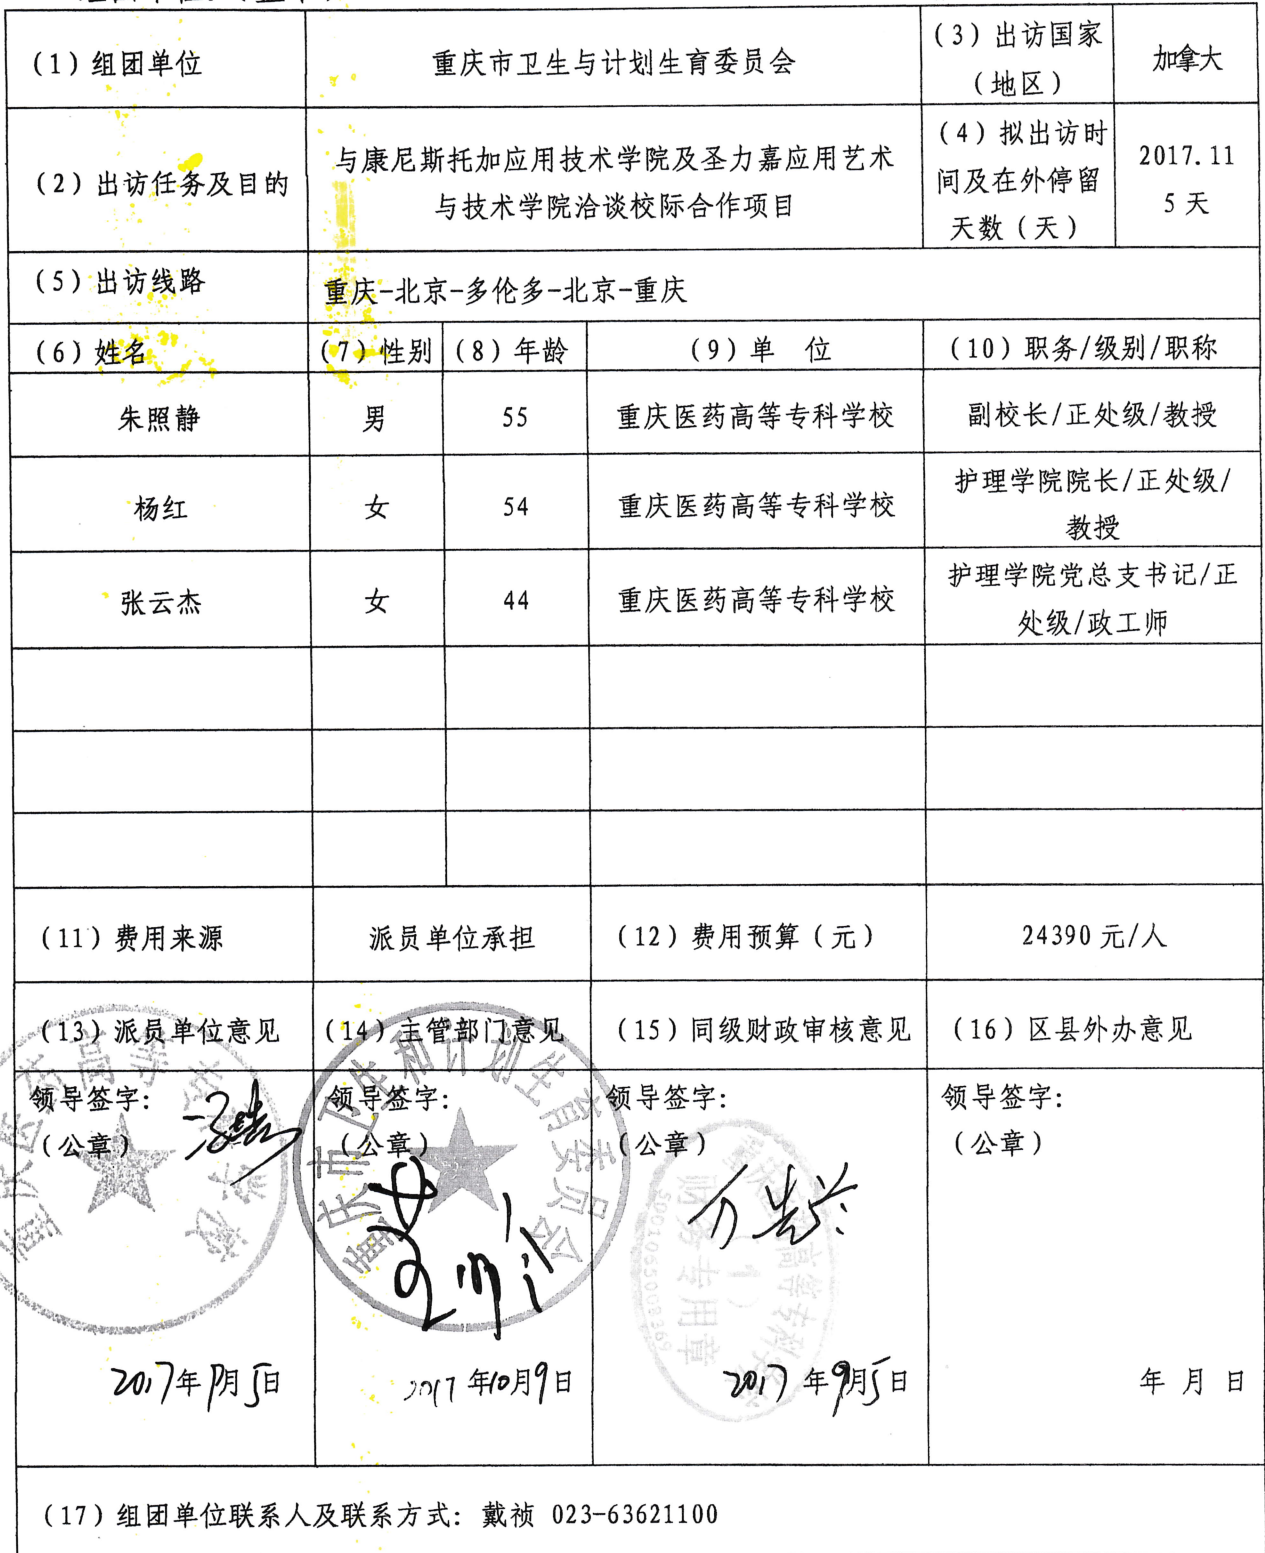 (1)组团单位
重庆市卫生与计划生育委员会
(3)出访国家
(地区)
加拿大
(2)出访任务及目的
与康尼斯托加应用技术学院及圣力嘉应用艺术
与技术学院洽谈校际合作项目
(4)拟出访时
间及在外停留
天数(天)
2017.11
5天
(5)出访线路
重庆-北京-多伦多-北京-重庆
(6)姓名 (7)性别 (8)年龄 (9)单 位 (10)职务/级别/职称
朱照静 男 55 重庆医药高等专科学校 副校长/正处级/教授
杨红 女 54 重庆医药高等专科学校 护理学院院长/正处级/
教授
张云杰 女 44 重庆医药高等专科学校 护理学院党总支书记/正
处级/政工师
(11)费用来源 派员单位承担 (12)费用预算(元) 24390元/人
(13)派员单位意见 (14)主管部门意见 (15)同级财政审核意见 (16)区县外办意见
领导签字: 领导签字: 领导签字: 领导签字:
(公章) (公章) (公章) (公章)
重庆市卫生和计划生育委员会
财务专用章
(1)
2017年9月5日 2017年10月9日 2017年9月5日 年 月 日
(17)组团单位联系人及联系方式: 戴祯 023-63621100